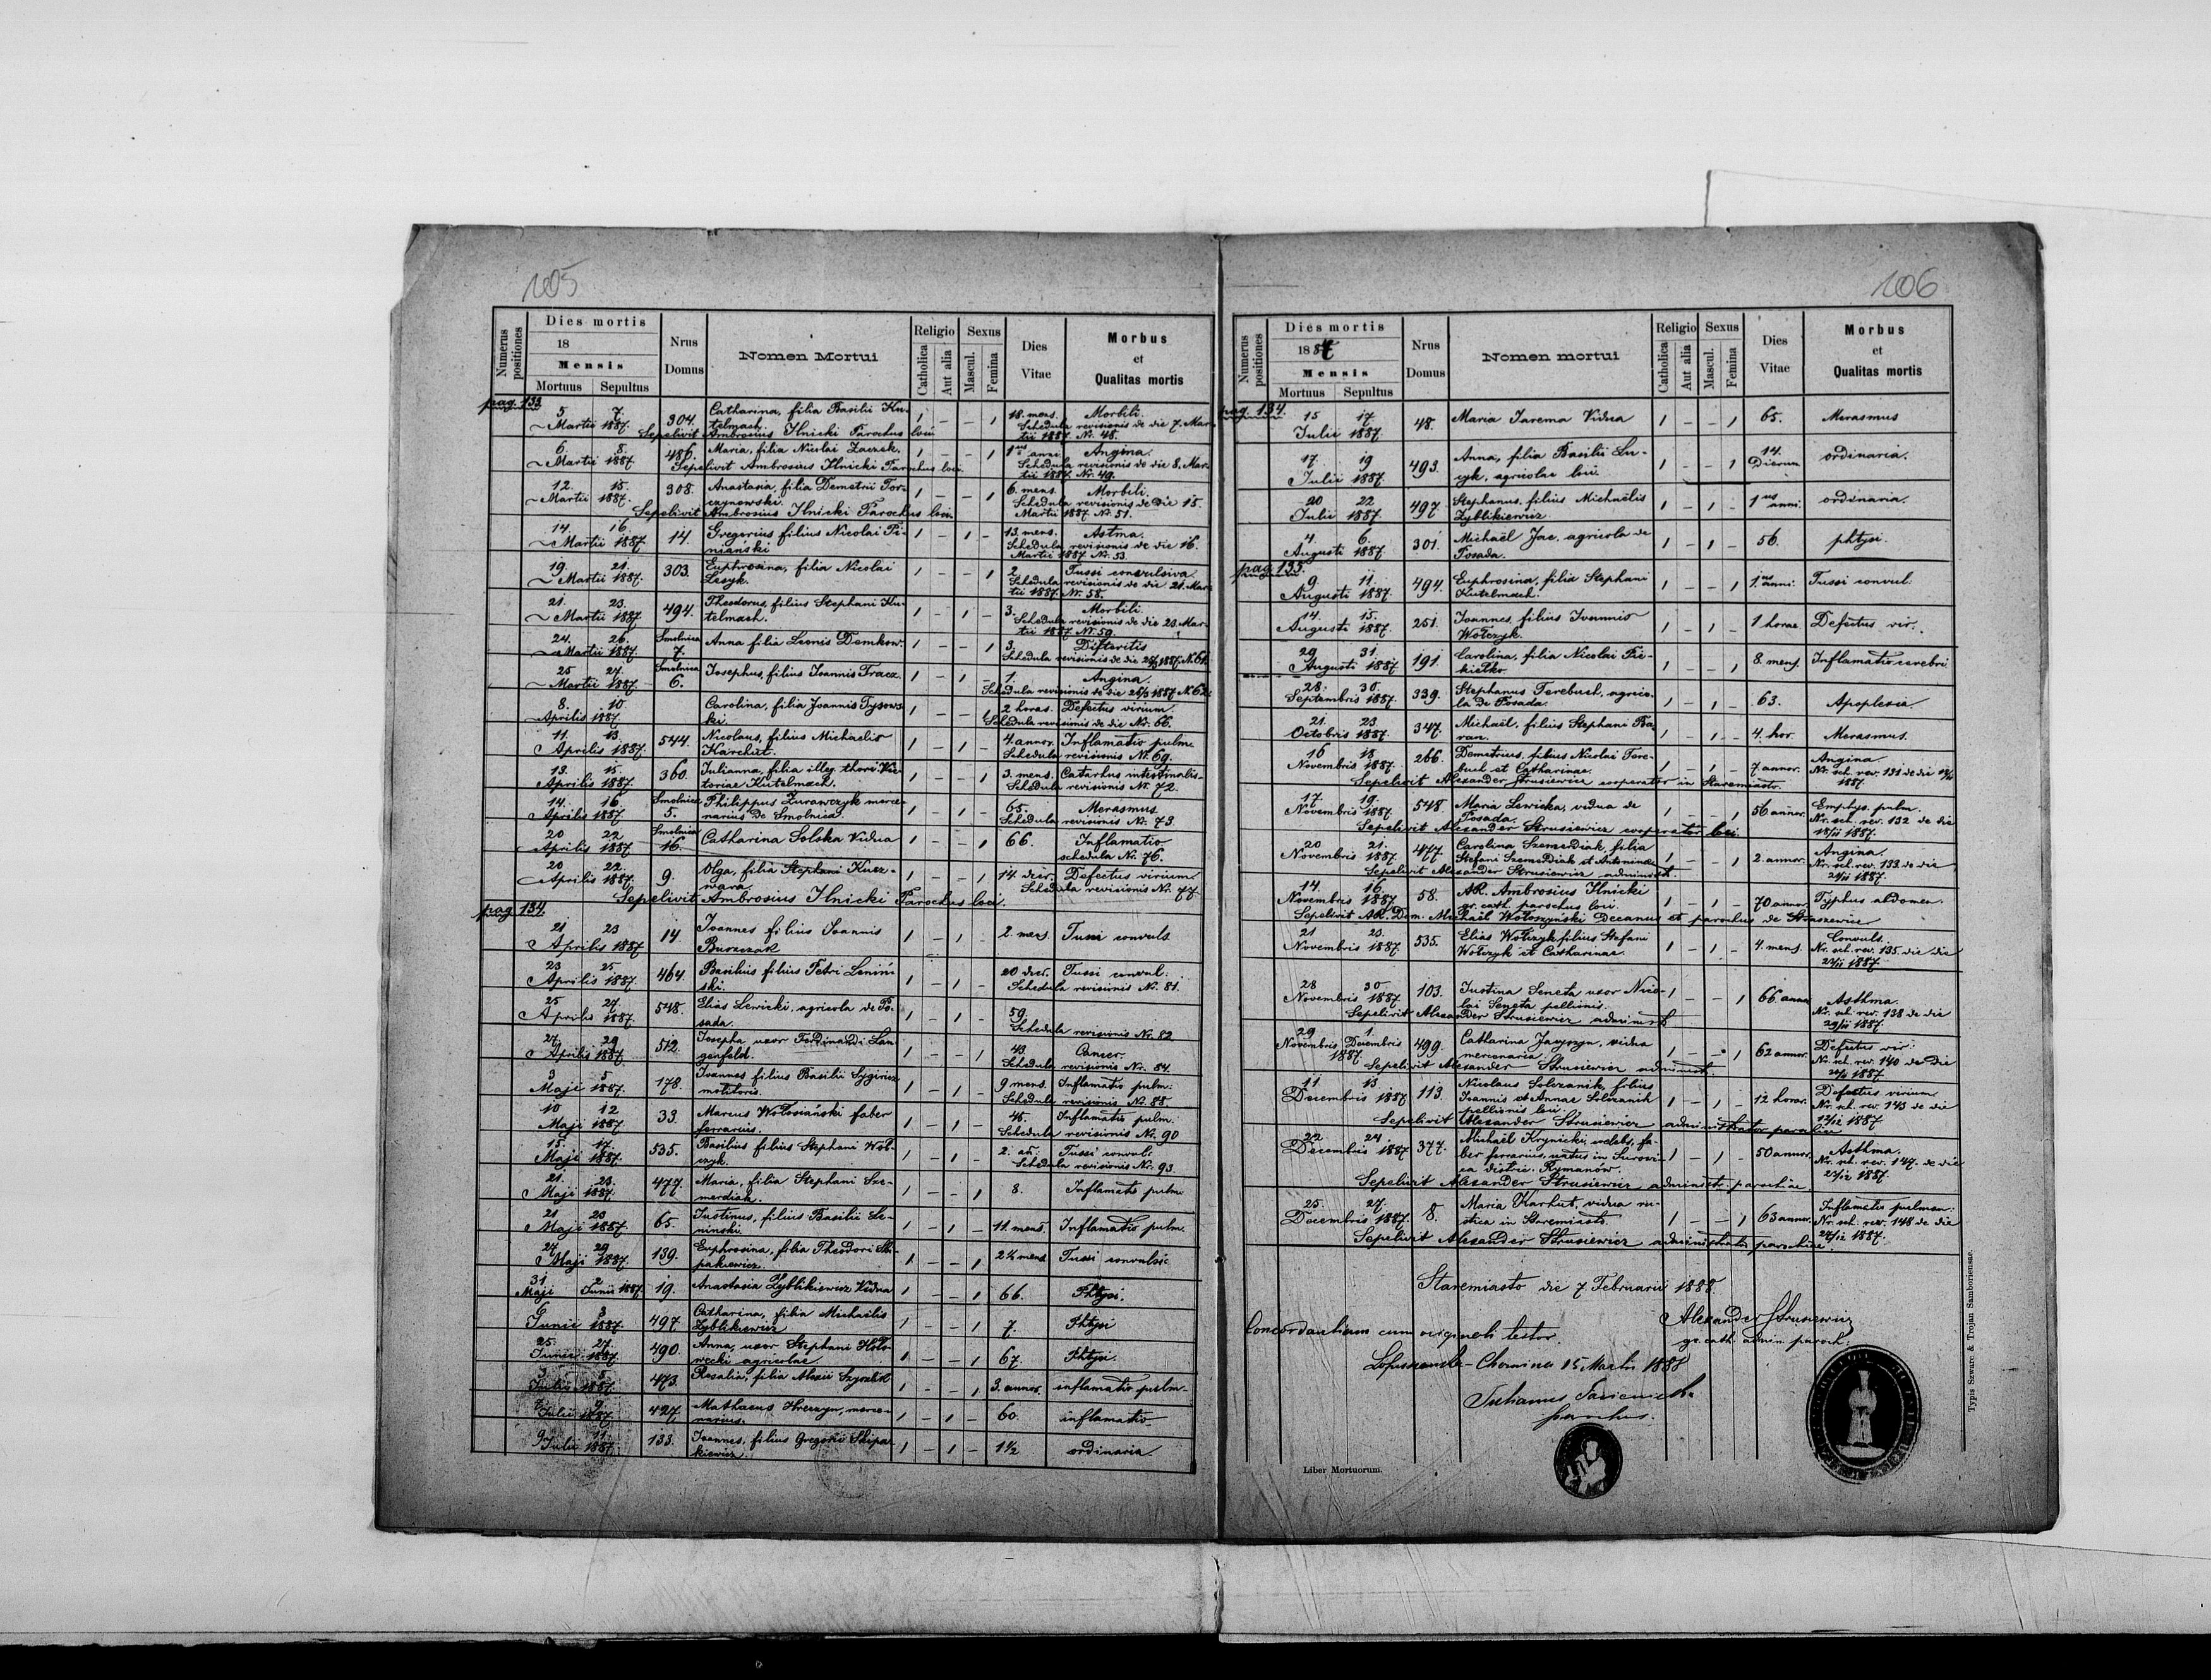 105
Numerus positiones
Dies mortis
18
Mensis
Mortuus
Sepultus
Nrus Domus
Nomen Mortui
Religio
Catholica
Aut alia
Sexus
Mascul.
Femina
Dies Vitae
Morbus et Qualitas mortis
pag. 133.
5. 7. Martii 1887. 304. Catharina, filia Basilii Ku- 1 – – 1 18. mens. Morbili.
telmach. Schedula revisionis de die 7. Mar-
Sepelivit Ambrosius Ilnicki Parochus loci tii 1887. Nr. 48.
6. 8. Martii 1887 486. Maria, filia Nicolai Zaczek. 1 – – 1 1 us anni Angina.
Sepelivit Ambrosius Ilnicki Parochus loci Schedula revisionis de die 8. Mar-
tii 1887. Nr. 49.
12. 15. Martii 1887. 308. Anastasia, filia Demetrii Tor- 1 – – 1 6. mens. Morbili.
czynowski. Schedula revisionis de die 15.
Sepelivit Ambrosius Ilnicki Parochus loci Martii 1887 Nr. 51.
14. 16. Martii 1887 14. Gregorius filius Nicolai Pi- 1 – 1 – 13. mens. Astma.
niański Schedula revisionis de die 16.
Martii 1887 Nr. 53.
19. 21. Martii 1887. 303. Euphrosina, filia Nicolai 1 – – 1 2. Tussi convulsiva
Lesyk. Schedula revisionis de die 21. Mar-
tii 1887. Nr. 58.
21. 23. Martii 1887 494. Theodorus, filius Stephani Ku- 1 – 1 – 3. Morbili.
telmach. Schedula revisionis de die 23. Mar-
tii 1887. Nr. 59.
24. 26. Martii 1887. Smolnica 7. Anna filia Leonis Demkow. 1 – – 1 3. Difteritis
Schedula revisionis de die 1887. N. 61.
25 27. Martii 1887. Smolnica 6. Josephus, filius Joannis Tracz. 1 – 1 – 1. Angina.
Schedula revisionis de die 26/3 1887 N. 62.
8. 10. Aprilis 1887. Carolina, filia Joannis Tysows- 1 – – 1 2 horas. Defectus virium.
ki. Schedula revisionis de die Nr. 66.
11. 13. Aprilis 1887. 544. Nicolaus, filius Michaelis 1 – 1 – 4. annor. Inflamatio pulm.
Karchut. Schedula revisionis Nr. 69.
13. 15. Aprilis 1887. 360. Julianna, filia illeg. thori Vic- 1 – – 1 3. mens. Catarhus intestinalis.
toriae Kutelmach. Schedula revisionis Nr. 72.
14. 16. Aprilis 1887. Smolnica 5. Philippus Zurawczyk merce- 1 – 1 – 65. Merasmus.
narius de Smolnica. Schedula revisionis Nr. 73.
20 22 Aprilis 1887 Smolnica 16. Catharina Solska Vidua 1 – – 1 66. Inflamatio
schedula Nr. 76.
20 22. Aprilis 1887. 9. Olga, filia Stephani Kucz- 1 – – 1 14. dier. Defectus virium.
mara. Schedula revisionis Nr. 77
Sepelivit Ambrosius Ilnicki Parochus loci.
pag. 134.
21 23 Aprilis 1887 14 Joannes filius Joannis 1 – 1 – 2. mens. Tussi convuls.
Burczak
23 25. Aprilis 1887. 464. Basilius filius Petri Leniń- 1 – 1 – 20 dier. Tussi convul.
ski. Schedula revisionis Nr. 81.
25 27. Aprilis 1887. 548. Elias Lewicki, agricola de Po- 1 – 1 – 59.
sada. Schedula revisionis Nr. 82
27. 29 Aprilis 1887. 512. Josepha uxor Ferdinandi Lan- 1 – – 1 43. Cancer.
genfeld. Schedula revisionis Nr. 84.
3 5 Maji 1887. 178. Joannes filius Basilii 1 – 1 – 9 mens. Inflamatio pulm.
molitoris. Schedula revisionis Nr. 88
10 12 Maji 1887 33. Marcus Wołosiański faber 1 – 1 – 45. Inflamatio pulm.
ferrarius. Schedula revisionis Nr. 90
15. 17. Maji 1887. 535. Basilius filius Stephani Woł- 1 – 1 – 2. an. Tussi convul.
czyk. Schedula revisionis Nr. 93.
21. 23. Maji 1887. 477. Maria, filia Stephani Sze- 1 – – 1 8. Inflamatio pulm
merdiak.
21 23 Maji 1887. 65. Justinus, filius Basilii Le- 1 – 1 – 11. mens. Inflamatio pulm.
ninski.
27 29 Maji 1887. 139. Euphrosina, filia Theodori Ski- 1 – – 1 2½ mens Tussi convulsi
pakiewicz.
31 Maji 2 Junii 1887. 19. Anastasia Zyblikiewicz Vidua 1 – – 1 66. Phtysi.
6 8 Junii 1887 497. Catharina, filia Michaelis 1 – – 1 7. Phtysi
Zyblikiewicz
25. 27. Junii 1887. 490. Anna, uxor Stephani Hoło- 1 – – 1 67. Phtysi.
wecki agricolae
3 5 Julii 1887. 473. Rosalia, filia Alexii 1 – – 1 3. annor. inflamatio pulm.
9. Julii 1887 427. Mathaeus Hreczyn, merce- 1 – 1 – 60. inflamatio
narius.
9 11 Julii 1887. 133. Joannes, filius Gregorii Skipa- 1 – 1 – 1½ ordinaria.
kiewicz.
106
Numerus positiones
Dies mortis
1887
Mensis
Mortuus
Sepultus
Nrus Domus
Nomen mortui
Religio
Catholica
Aut alia
Sexus
Mascul.
Femina
Dies Vitae
Morbus et Qualitas mortis
pag. 134.
15 17 Julii 1887. 48. Maria Jarema Vidua 1 – – 1 65. Merasmus
17. 19 Julii 1887. 493. Anna, filia Basilii Lu- 1 – – 1 14. Dierum ordinaria.
cyk, agricolae loci
20 22 Julii 1887 497. Stephanus, filius Michaëlis 1 – 1 – 1 us anni. ordinaria.
Zyblikiewicz
4. 6. Augusti 1887 301. Michaël Jac, agricola de 1 – 1 – 56. phtysi.
Posada.
pag. 135.
9. 11. Augusti 1887. 494. Euphrosina, filia Stephani 1 – – 1 1. us anni. Tussi convul.
Kutelmach.
14. 15. Augusti 1887. 251. Joannes, filius Joannis 1 – 1 – 1 horae Defectus vir.
Wołczyk.
29 31. Augusti 1887 191. Carolina, filia Nicolai Pie- 1 – – 1 8. mens. Inflamatio cerebri
kiełko.
28. 30. Septembris 1887. 339. Stephanus Terebuch, agrico- 1 – 1 – 63. Apoplexia.
la de Posada.
21. 23. Octobris 1887. 347. Michaël, filius Stephani Ba- 1 – 1 – 4. hor. Merasmus.
ran.
16 18 Novembris 1887. 266. Demetrius, filius Nicolai Tere- 1 – 1 – 7 annor. Angina
buch et Catharinae. Nr. sch. rev. 131 de die
Sepelivit Alexander Strusiewicz cooperator in Staremiasto. 1887.
17. 19. Novembris 1887. 548. Maria Lewicka, vidua de 1 – – 1 56 annor. Emphys. pulm.
Posada. Nr. sch. rev. 132 de die
Sepelivit Alexander Strusiewicz cooperator loci. 18/11 1887.
20 21. Novembris 1887. 477. Carolina Szemerdiak, filia 1 – – 1 2. annor. Angina.
Stefani Szemerdiak et Antoninae Nr. sch. rev. 133. de die
Sepelivit Alexander Strusiewicz administ. 21/11 1887.
14. 16. Novembris 1887. 58. AR. Ambrosius Ilnicki 1 – 1 – 70 annor. Typhus abdomen.
gr. cath. parochus loci.
Sepelivit AR. Dom. Michaël Wołoszyński Decanus et parochus de
21 23. Novembris 1887. 535. Elias Wołczyk, filius Stefani 1 – 1 – 4. mens. Convuls.
Wołczyk et Catharinae. Nr. sch. rev. 135. de die
22/11 1887.
28 30 Novembris 1887 103. Justina Seneta uxor Nico- 1 – – 1 66 annor Asthma.
lai Seneta pellionis. Nr. sch. rev. 138 de die
Sepelivit Alexander Strusiewicz administ. 29/11 1887.
29 Novembris 1. Decembris 1887. 499. Catharina Jacyszyn, vidua 1 – – 1 62 annor. Defectus vir.
mercenaria. Nr. sch. rev. 140 de die
Sepelivit Alexander Strusiewicz administ. 1887.
11 13 Decembris 1887 113. Nicolaus Solczanik, filius 1 – 1 – 12 horar. Defectus virium.
Joannis et Annae Solczanik Nr. sch. rev. 143 de die
pellionis loci. 12/12 1887.
Sepelivit Alexander Strusiewicz administrator parochiae
22 24 Decembris 1887 377. Michaël Krynicki, caelebs, fa- 1 – 1 – 50 annor. Asthma.
ber ferrarius, natus in Surovi- Nr. sch. rev. 147. de die
ca distric. Rymanów. 23/12 1887.
Sepelivit Alexander Strusiewicz administ. parochiae
25. 27. Decembris 1887. 8. Maria Karhut, vidua ru- 1 – – 1 63 annor. Inflamatio pulmon.
stica in Staremiasto. Nr. sch. rev. 148 de die
Sepelivit Alexander Strusiewicz administrator parochiae. 1887.
Staremiasto die 7 Februarii 1888.
Alexander Strusiewicz
gr. cath. admin. paroch.
Concordantiam cum originali testor.
Chomina 15 Martii 1888
parochus.
Liber Mortuorum.
Typis Szwarc & Trojan Samboriensae.